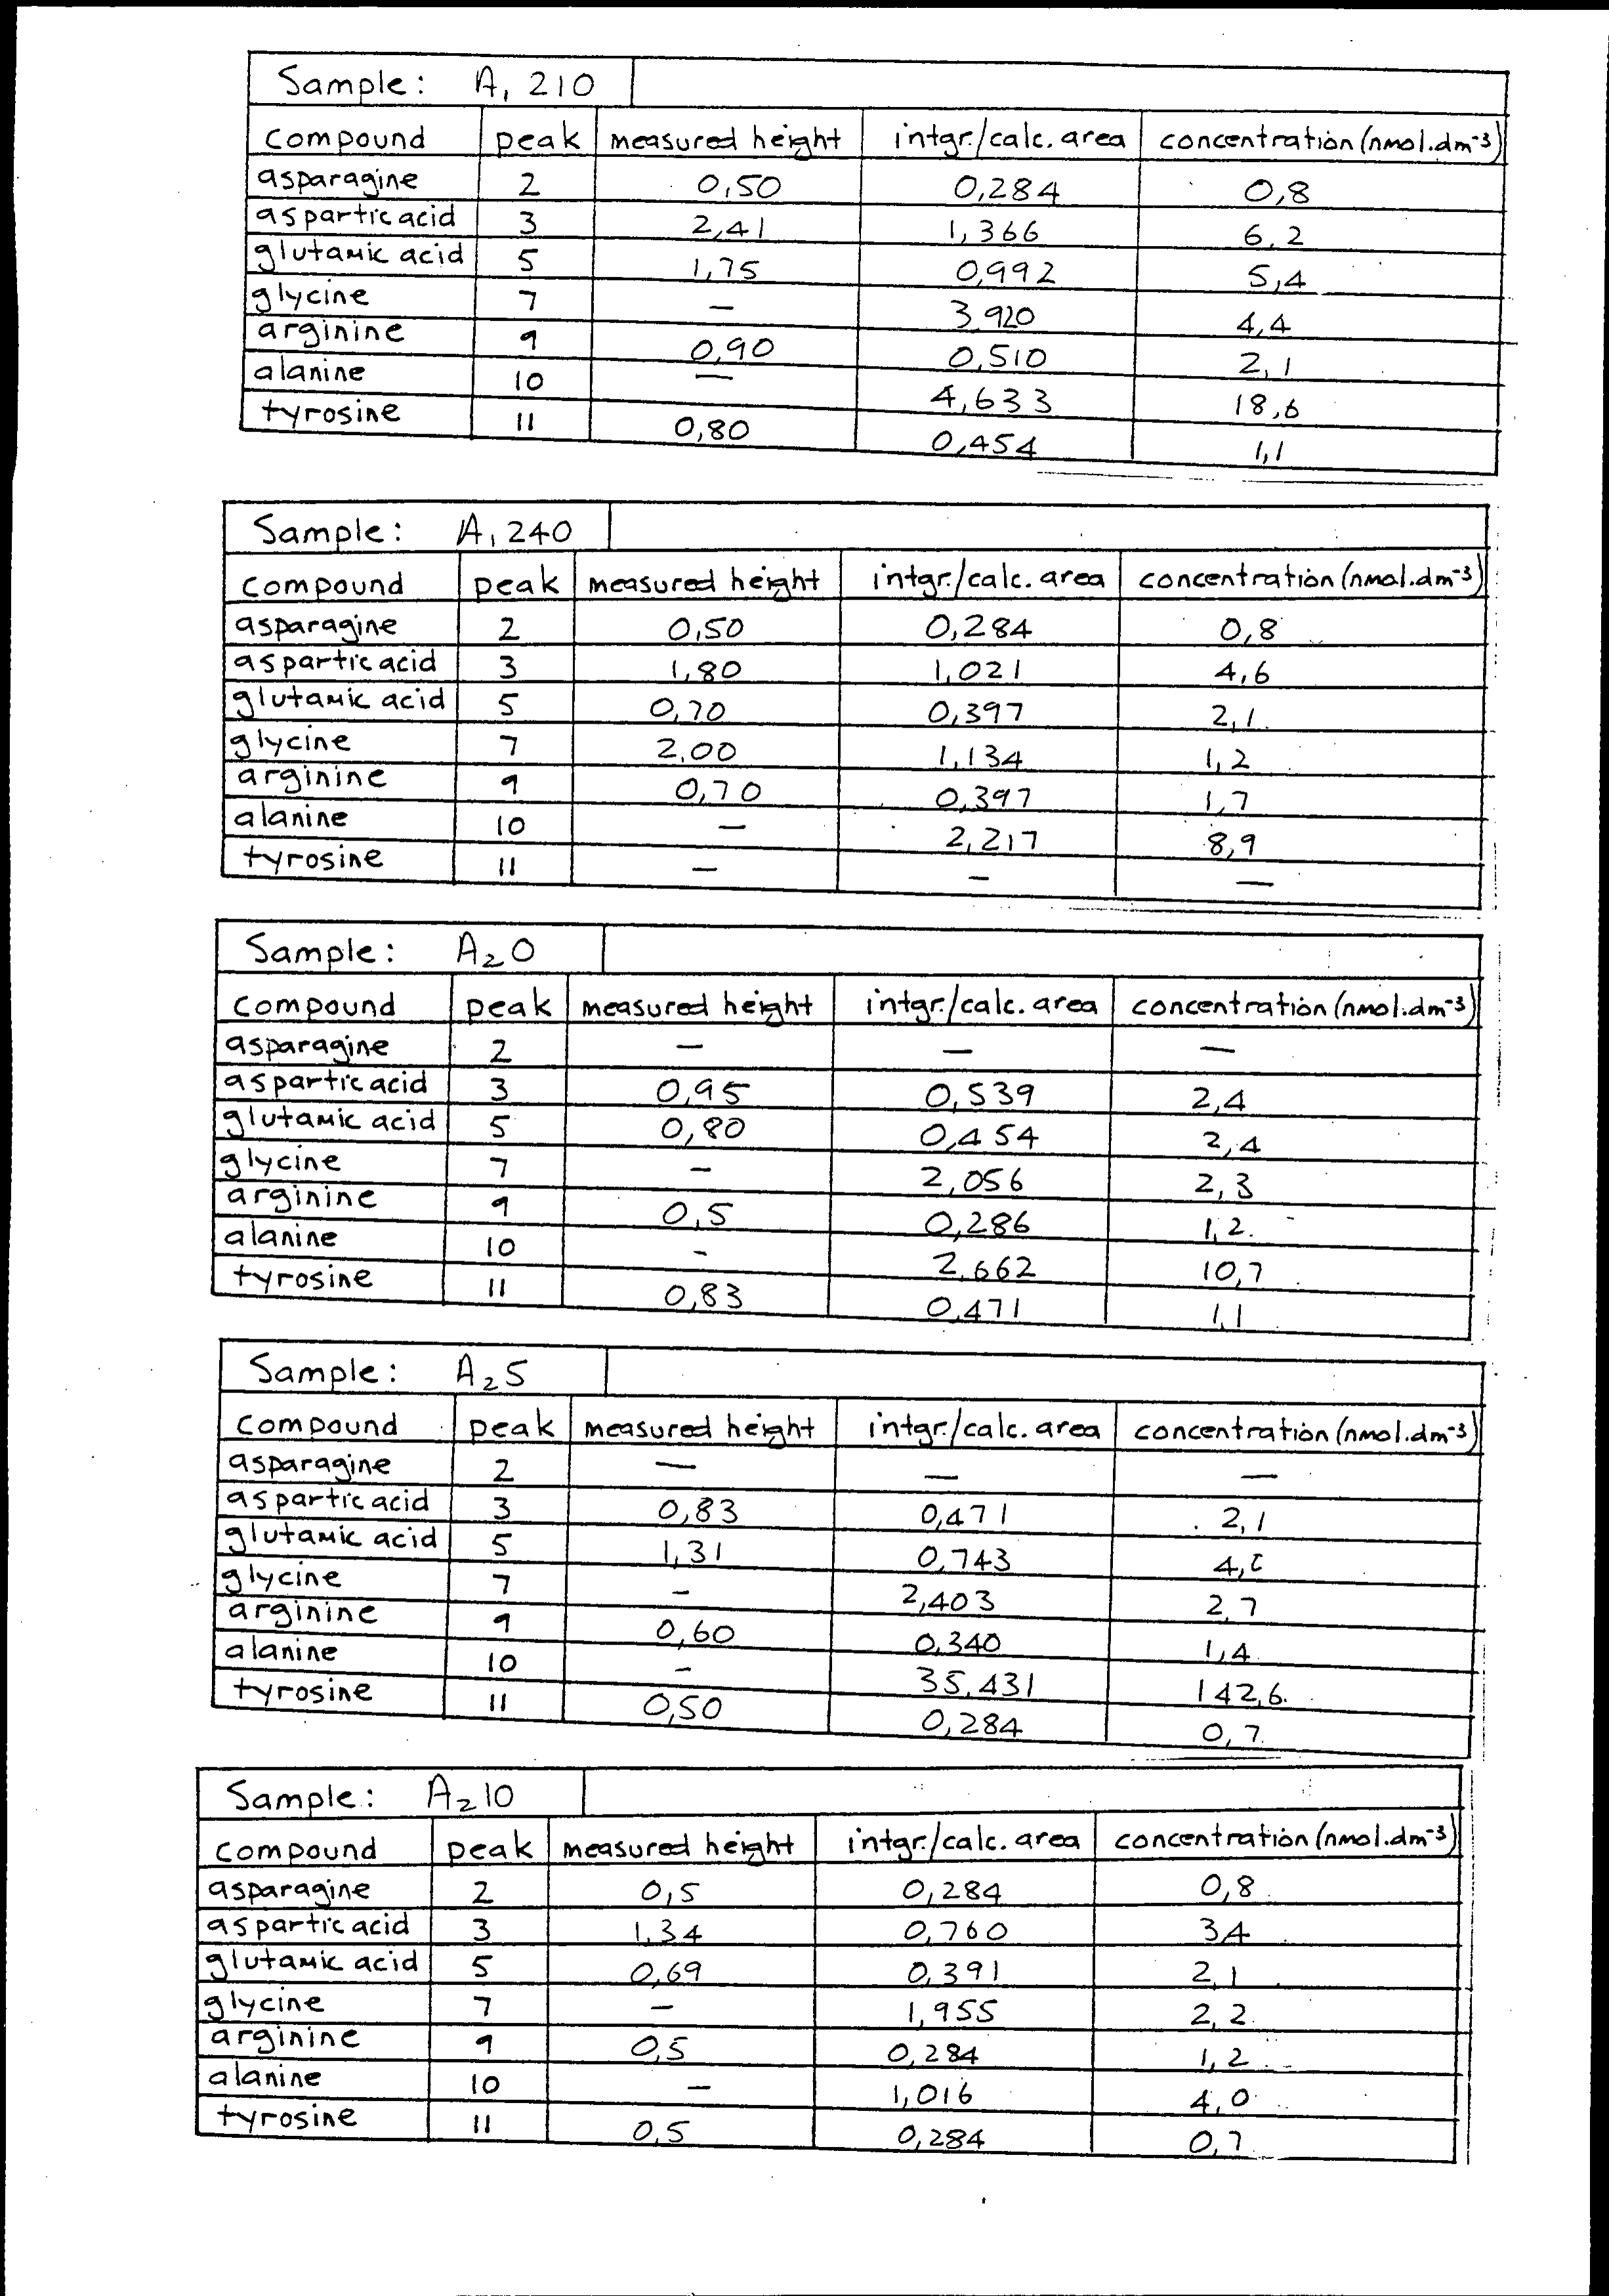 Sample: A₁ 210
compound peak measured height intgr./calc. area concentration (nmol.dm⁻³)
asparagine 2 0,50 0,284 0,8
aspartic acid 3 2,41 1,366 6,2
glutamic acid 5 1,75 0,992 5,4
glycine 7 – 3,920 4,4
arginine 9 0,90 0,510 2,1
alanine 10 – 4,633 18,6
tyrosine 11 0,80 0,454 1,1
Sample: A₁ 240
compound peak measured height intgr./calc. area concentration (nmol.dm⁻³)
asparagine 2 0,50 0,284 0,8
aspartic acid 3 1,80 1,021 4,6
glutamic acid 5 0,70 0,397 2,1
glycine 7 2,00 1,134 1,2
arginine 9 0,70 0,397 1,7
alanine 10 – 2,217 8,9
tyrosine 11 – – –
Sample: A₂0
compound peak measured height intgr./calc. area concentration (nmol.dm⁻³)
asparagine 2 – – –
aspartic acid 3 0,95 0,539 2,4
glutamic acid 5 0,80 0,454 2,4
glycine 7 – 2,056 2,3
arginine 9 0,5 0,286 1,2
alanine 10 – 2,662 10,7
tyrosine 11 0,83 0,471 1,1
Sample: A₂5
compound peak measured height intgr./calc. area concentration (nmol.dm⁻³)
asparagine 2 – – –
aspartic acid 3 0,83 0,471 2,1
glutamic acid 5 1,31 0,743
glycine 7 – 2,403 2,7
arginine 9 0,60 0,340 1,4
alanine 10 – 35,431 142,6
tyrosine 11 0,50 0,284 0,7
Sample: A₂10
compound peak measured height intgr./calc. area concentration (nmol.dm⁻³)
asparagine 2 0,5 0,284 0,8
aspartic acid 3 1,34 0,760 3,4
glutamic acid 5 0,69 0,391 2,1
glycine 7 – 1,955 2,2
arginine 9 0,5 0,284 1,2
alanine 10 – 1,016 4,0
tyrosine 11 0,5 0,284 0,7